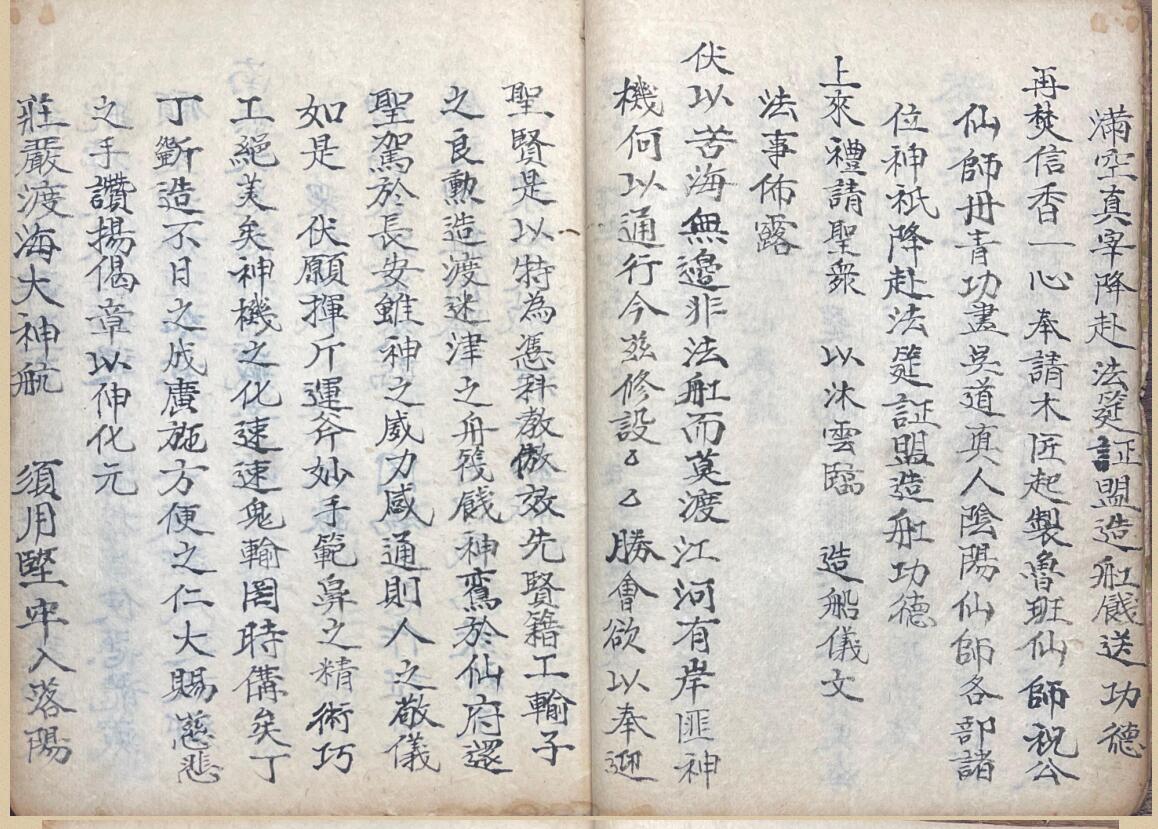 滿空真宰降赴法筵証盟造舡餞送功德
再焚信香一心奉請木匠起製魯班仙師祝公
仙師丹青功盡吳道真人陰陽仙師各部諸
位神祇降赴法筵証盟造舡功德
上來禮請聖衆 以沐雲臨 造船儀文
法事佈露
伏以苦海無邊非法舡而莫渡江河有岸匪神
機何以通行今玆修設乙乙勝會欲以奉迎
聖賢是以特為憑科教倣效先賢籍工輸子
之良勳造渡迷津之舟筏餞神鸞於仙府還
聖駕於長安雖神之威力感通則人之敬儀
如是 伏願揮斤運斧妙手範鼻之精術巧
工絕美矣神機之化速速鬼輸罔時備矣丁
丁斷造不日之成廣施方便之仁大賜慈悲
之手讚揚偈章以伸化元
莊嚴渡海大神航 須用堅牢入落陽